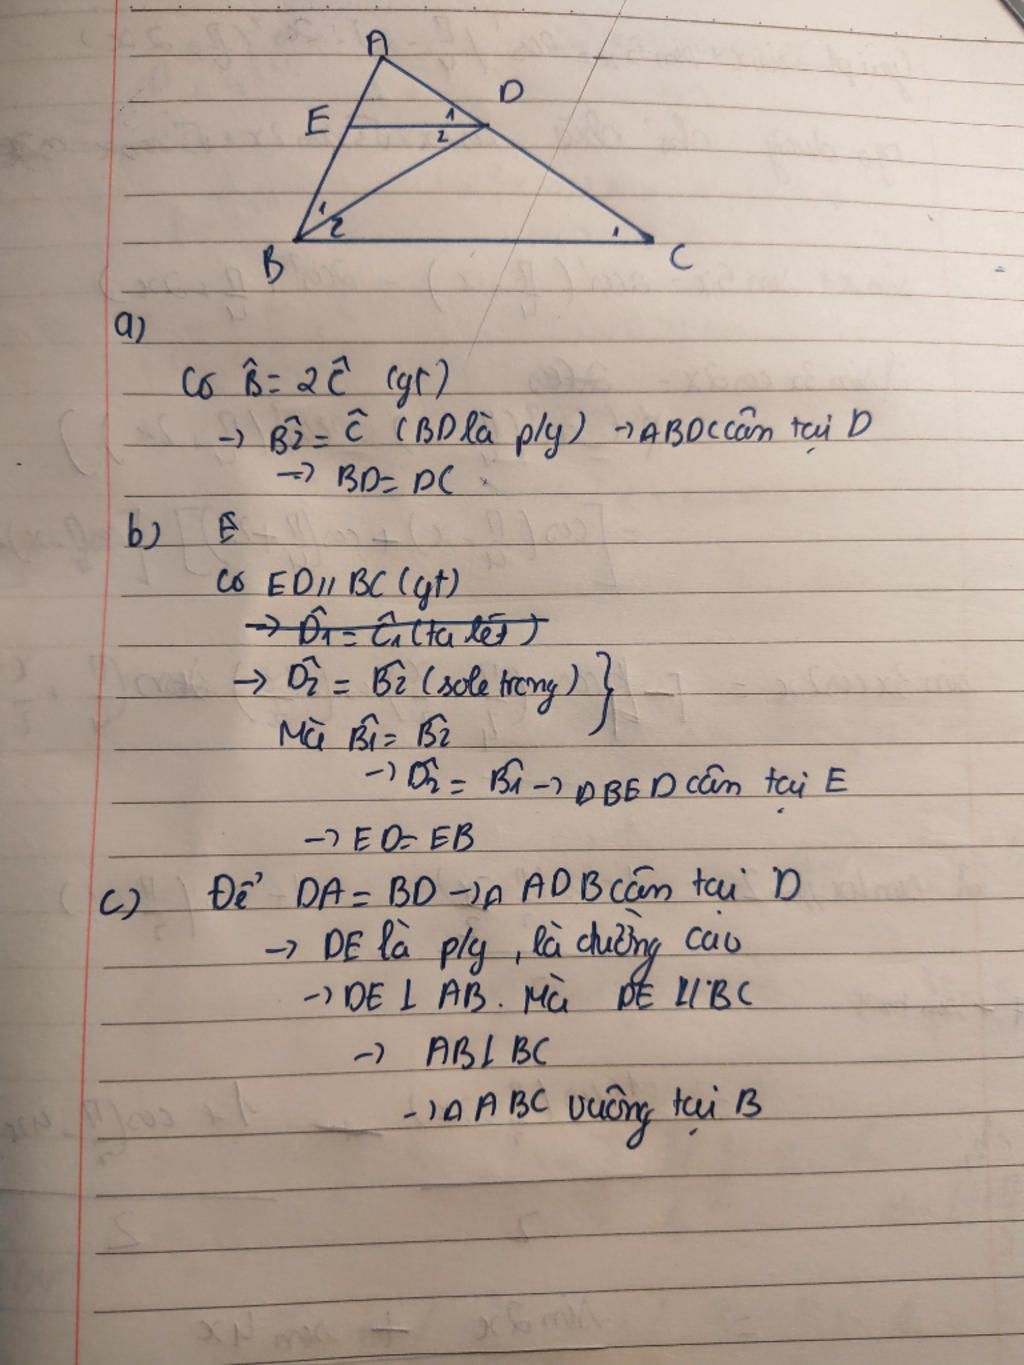 A
D
E
1
2
1
2
1
B
C
a)
Có B̂ = 2Ĉ (gt)
→ B̂2 = Ĉ (BD là p/g) → ΔBDC cân tại D
→ BD = DC
b) Ê
Có ED // BC (gt)
→ D̂1 = Ĉ1 (ta lét)
→ D̂2 = B̂2 (sole trong) }
Mà B̂1 = B̂2
→ D̂2 = B̂1 → ΔBED cân tại E
→ ED = EB
c) Để DA = BD → Δ ADB cân tại D
→ DE là p/g, là đường cao
→ DE ⊥ AB. Mà DE // BC
→ AB ⊥ BC
→ Δ ABC vuông tại B